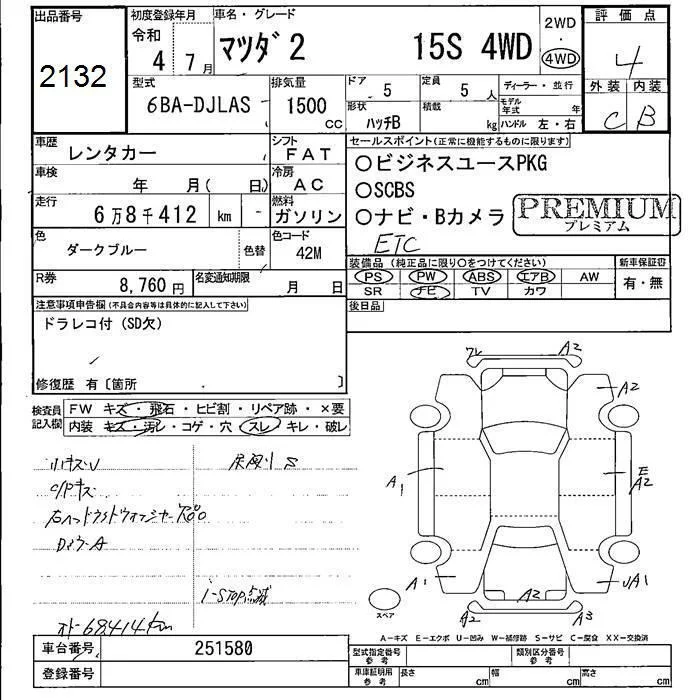 出品番号 初度登録年月 車名・グレード 評価点
2132 令和 4 7月 マツダ2 15S 4WD 2WD 4WD 4
型式 排気量 ドア 5 定員 5人 ディーラー・並行 外装 内装
6BA-DJLAS 1500 CC 形状 ハッチB 積載 kg モデル年式 年 C B
ハンドル 左・右
車歴 レンタカー シフト FAT セールスポイント(正常に機能するものに限ります)
車検 年 月( 日) 冷房 AC ○ビジネスユースPKG
○SCBS
走行 6万8千412 km - 燃料 ガソリン ○ナビ・Bカメラ
PREMIUM
プレミアム
ETC
色 ダークブルー 色替 色コード 42M
装備品(純正品に限り○をつけてください) 新車保証書
R券 8,760円 名変通知期限 月 日 PS PW ABS エアB AW 有・無
SR ナビ TV カワ
注意事項申告欄(不具合内容等は具体的に記入して下さい) 後日品
ドラレコ付(SD欠)
修復歴 有〔箇所 〕
検査員記入欄 FW キズ・飛石・ヒビ割・リペア跡・×要
内装 キズ・汚レ・コゲ・穴 スレ キレ・破レ
ワレ A2
A2
小キズV
A1
E
A2
C/Pキズ
A1 A2 A1
1-STOP点滅
スペア
A2 A3
68414km
A-キズ E-エクボ U-凹み W-補修跡 S-サビ C-腐食 XX-交換済
車台番号 251580 型式指定番号 参考 類別区分番号 参考
登録番号 車庫証明用 参考 長さ cm 幅 cm 高さ cm